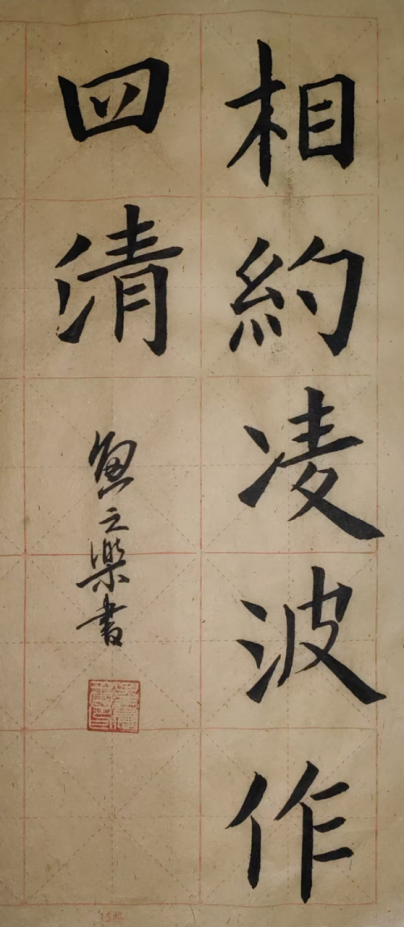 相約凌波作
四清
魚之樂書